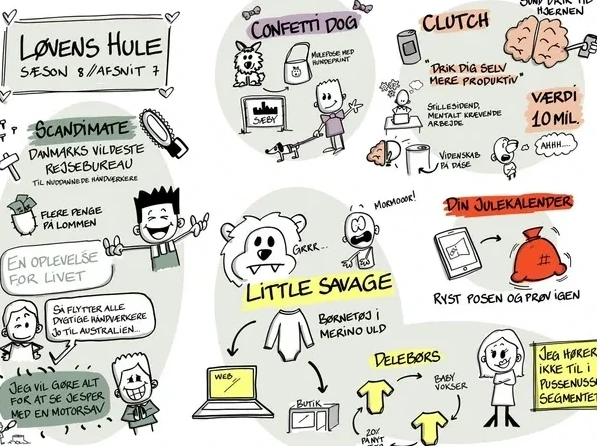 LØVENS HULE
SÆSON 8 // AFSNIT 7
SCANDIMATE
DANMARKS VILDESTE
REJSEBUREAU
TIL NUDDANNEDE HÅNDVÆRKERE
FLERE PENGE
PÅ LOMMEN
EN OPLEVELSE
FOR LIVET
SÅ FLYTTER ALLE
DYGTIGE HÅNDVÆRKERE
JO TIL AUSTRALIEN...
JEG VIL GØRE ALT
FOR AT SE JESPER
MED EN MOTORSAV
CONFETTI DOG
MULEPOSE MED
HUNDEPRINT
SÆBY
CLUTCH
"DRIK DIG SELV
MERE PRODUKTIV"
STILLESIDEND,
MENTALT KRÆVENDE
ARBEJDE
VIDENSKAB
PÅ DÅSE
SUND DRIK TIL
HJERNEN
VÆRDI
10 MIL.
AHHH....
GRRR...
MORMOOOR!
LITTLE SAVAGE
BØRNETØJ I
MERINO ULD
WEB
BUTIK
DIN JULEKALENDER
#
RYST POSEN OG PRØV IGEN
DELEBØRS
BABY
VOKSER
20%
PÅ NYT
JEG HØRER
IKKE TIL I
PUSSENUSS
SEGMENTET